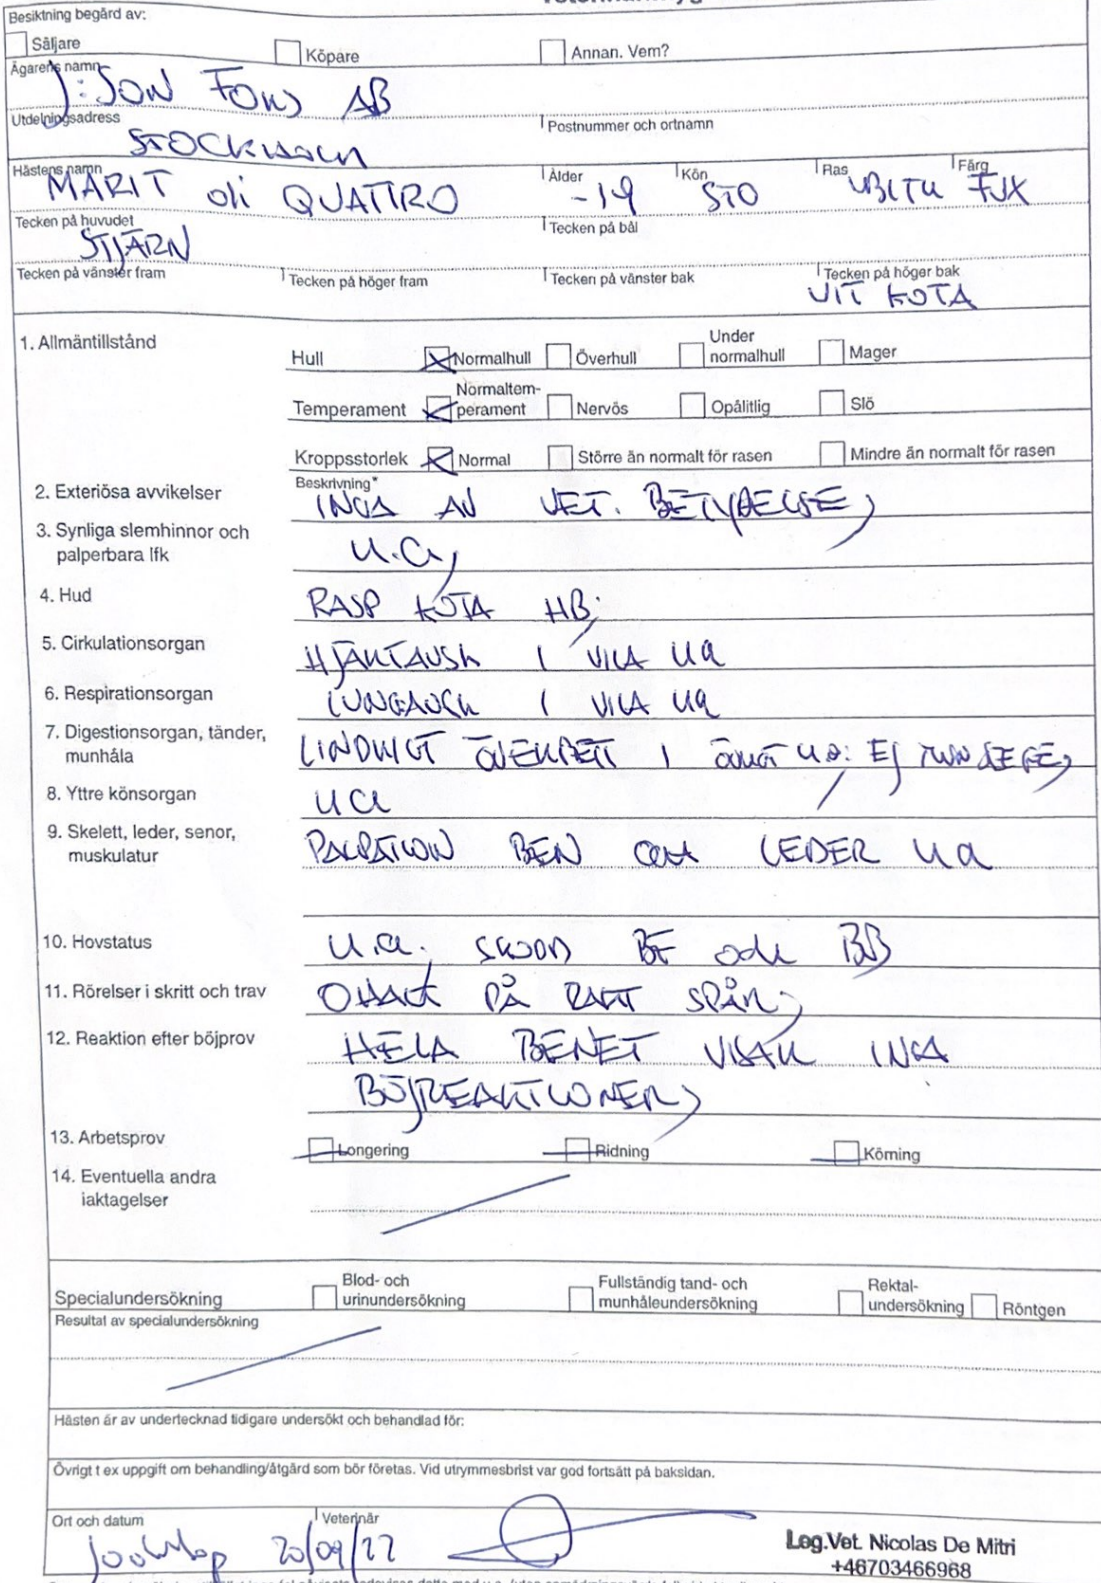 Besiktning begärd av:
Säljare Köpare Annan. Vem?
Ägarens namn
J:SON FONS AB
Utdelningsadress Postnummer och ortnamn
STOCKHOLM
Hästens namn Ålder Kön Ras Färg
MARIT oli QUATTRO -19 STO VBLTH FUX
Tecken på huvudet Tecken på bål
STJÄRN
Tecken på vänster fram Tecken på höger fram Tecken på vänster bak Tecken på höger bak
VIT KOTA
1. Allmäntillstånd
Hull Normalhull Överhull Under normalhull Mager
Temperament Normaltem-perament Nervös Opålitlig Slö
Kroppsstorlek Normal Större än normalt för rasen Mindre än normalt för rasen
2. Exteriösa avvikelser Beskrivning*
INGA AV VET. BETYDELSE
3. Synliga slemhinnor och
palperbara lfk U.a,
4. Hud RASP KOTA HB.
5. Cirkulationsorgan HJÄRTAUSK I VILA Ua
6. Respirationsorgan LUNGAUSK I VILA Ua
7. Digestionsorgan, tänder,
munhåla LINDRIGT ÖVERBETT I ÖVRIGT u.a: Ej
8. Yttre könsorgan ua
9. Skelett, leder, senor,
muskulatur PALPATION BEN och LEDER ua
10. Hovstatus U.a. SKODD BF och BB
11. Rörelser i skritt och trav OHALT PÅ RAKT SPÅR,
12. Reaktion efter böjprov HELA BENET VISAR INGA
BÖJREAKTIONER,
13. Arbetsprov Longering Ridning Körning
14. Eventuella andra
iaktagelser
Specialundersökning Blod- och urinundersökning Fullständig tand- och munhåleundersökning Rektal-undersökning Röntgen
Resultat av specialundersökning
Hästen är av undertecknad tidigare undersökt och behandlad för:
Övrigt t ex uppgift om behandling/åtgärd som bör företas. Vid utrymmesbrist var god fortsätt på baksidan.
Ort och datum Veterinär
20/09/22
Leg.Vet. Nicolas De Mitri
+46703466968